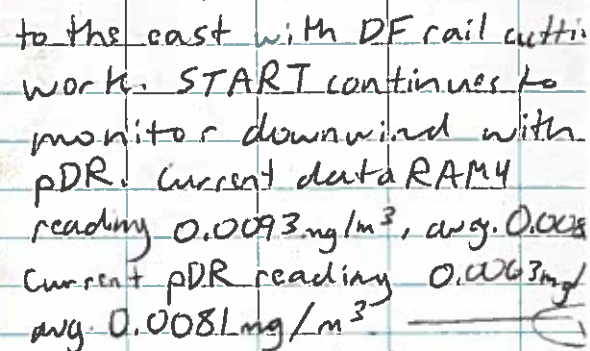 to the east with DF rail cutti
work. START continues to
monitor downwind with
pDR. Current data RAM4
reading 0.0093 mg/m³, avg. 0.008
Current pDR reading 0.0063 mg/
avg. 0.0081 mg/m³